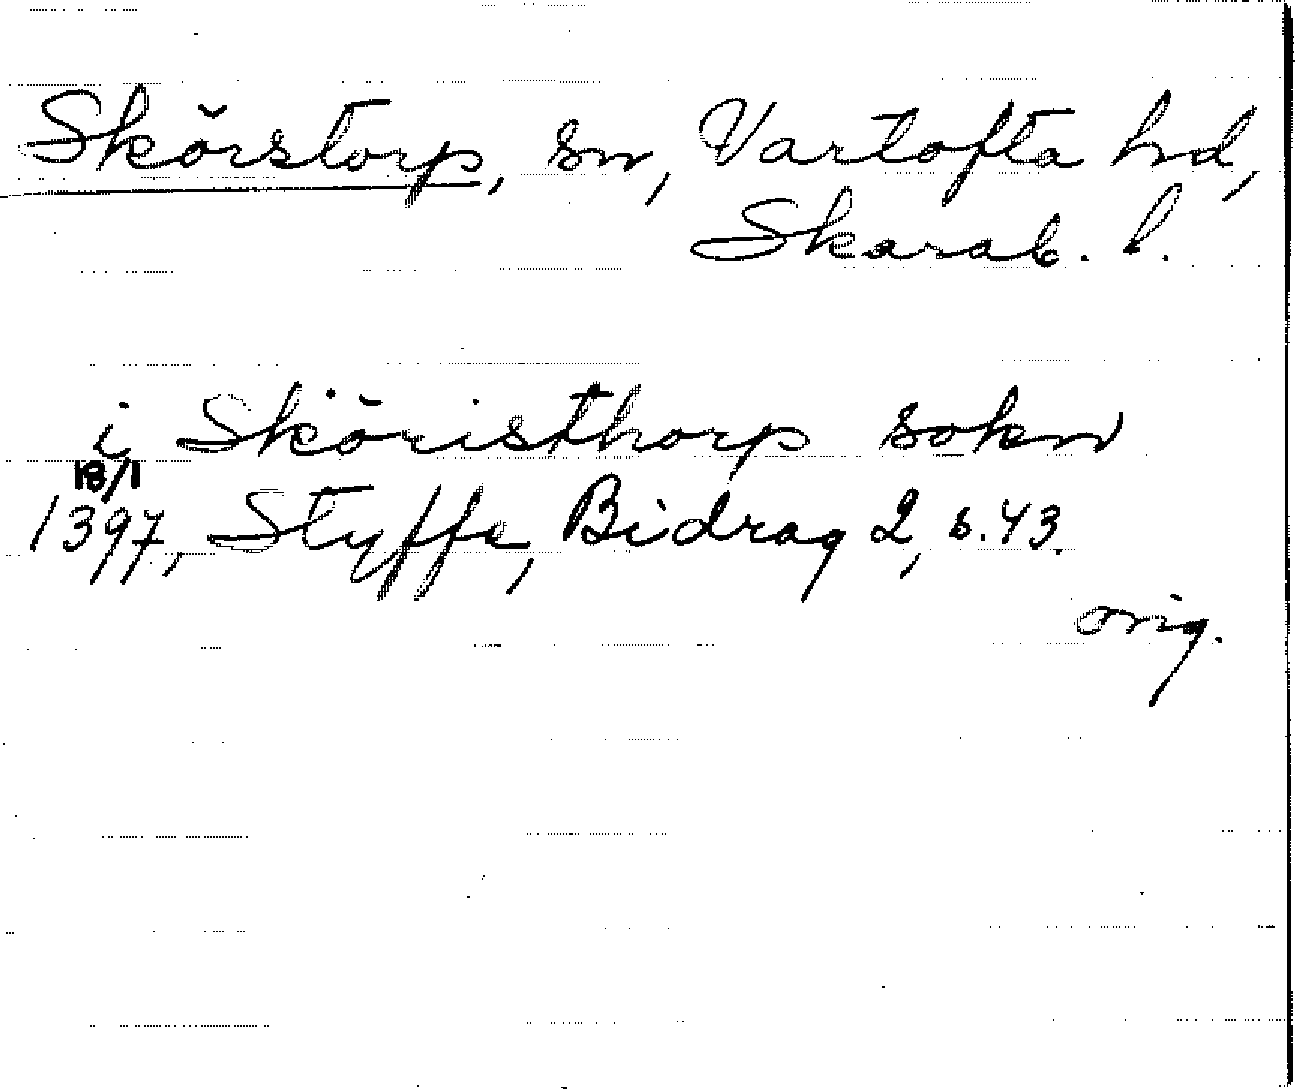 Skörstorp, sn, Vartofta hd,
Skarab. l.
i Sköristhorp sokn
18/1
1397, Styffe, Bidrag 2, s. 43.
orig.